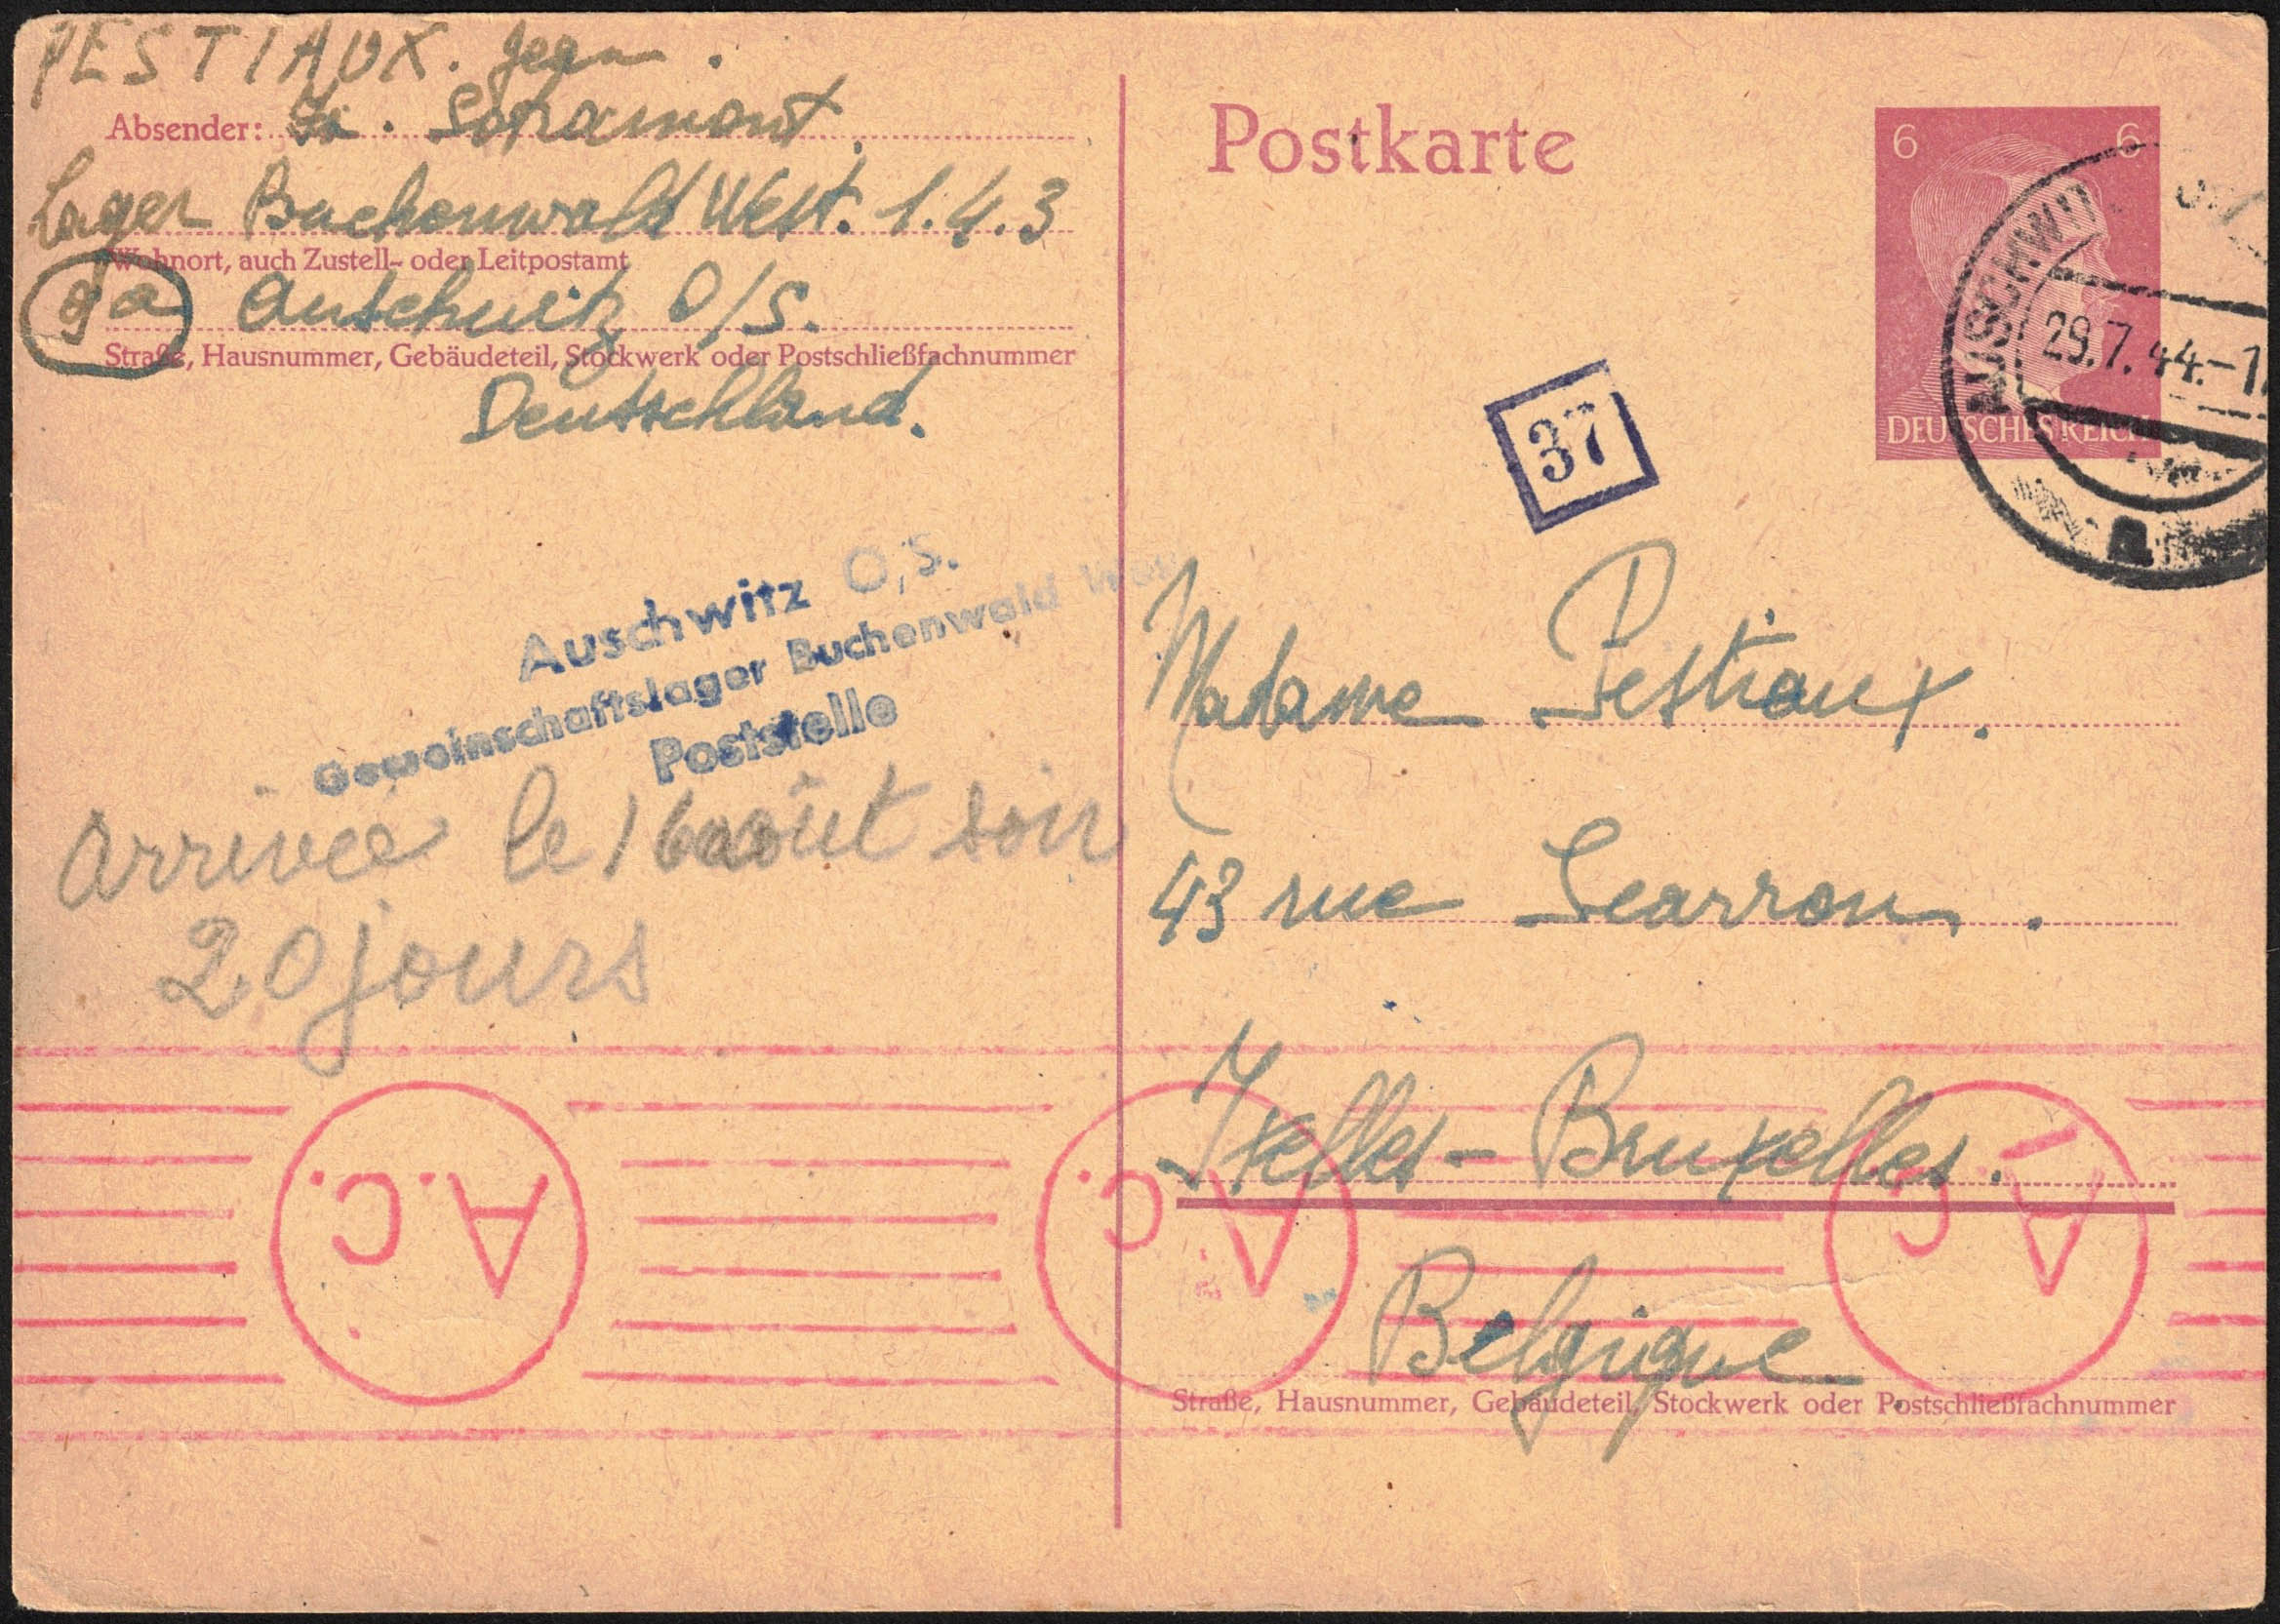 PESTIAUX. Jean.
Absender: Fa. Sotramont.
Lager Buchenwald West. 1.4.3
Wohnort, auch Zustell- oder Leitpostamt
9a Auschwitz O/S.
Straße, Hausnummer, Gebäudeteil, Stockwerk oder Postschließfachnummer
Deutschland.
Auschwitz O,S.
Gemeinschaftslager Buchenwald West
Poststelle
arrivée le 16 août soir
20 jours
A.C.
Postkarte
6 6
DEUTSCHES REICH
AUSCHWITZ
29.7.44.-1
a
37
Madame Pestiaux.
43 rue Scarron.
Ixelles - Bruxelles.
Belgique
Straße, Hausnummer, Gebäudeteil, Stockwerk oder Postschließfachnummer
A.C.
A.C.